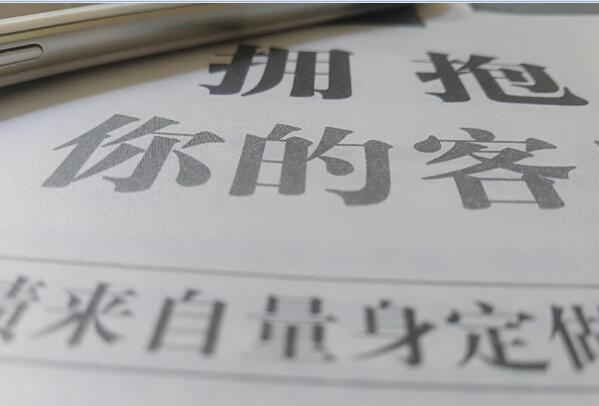 拥抱
你的客
绩来自量身定做